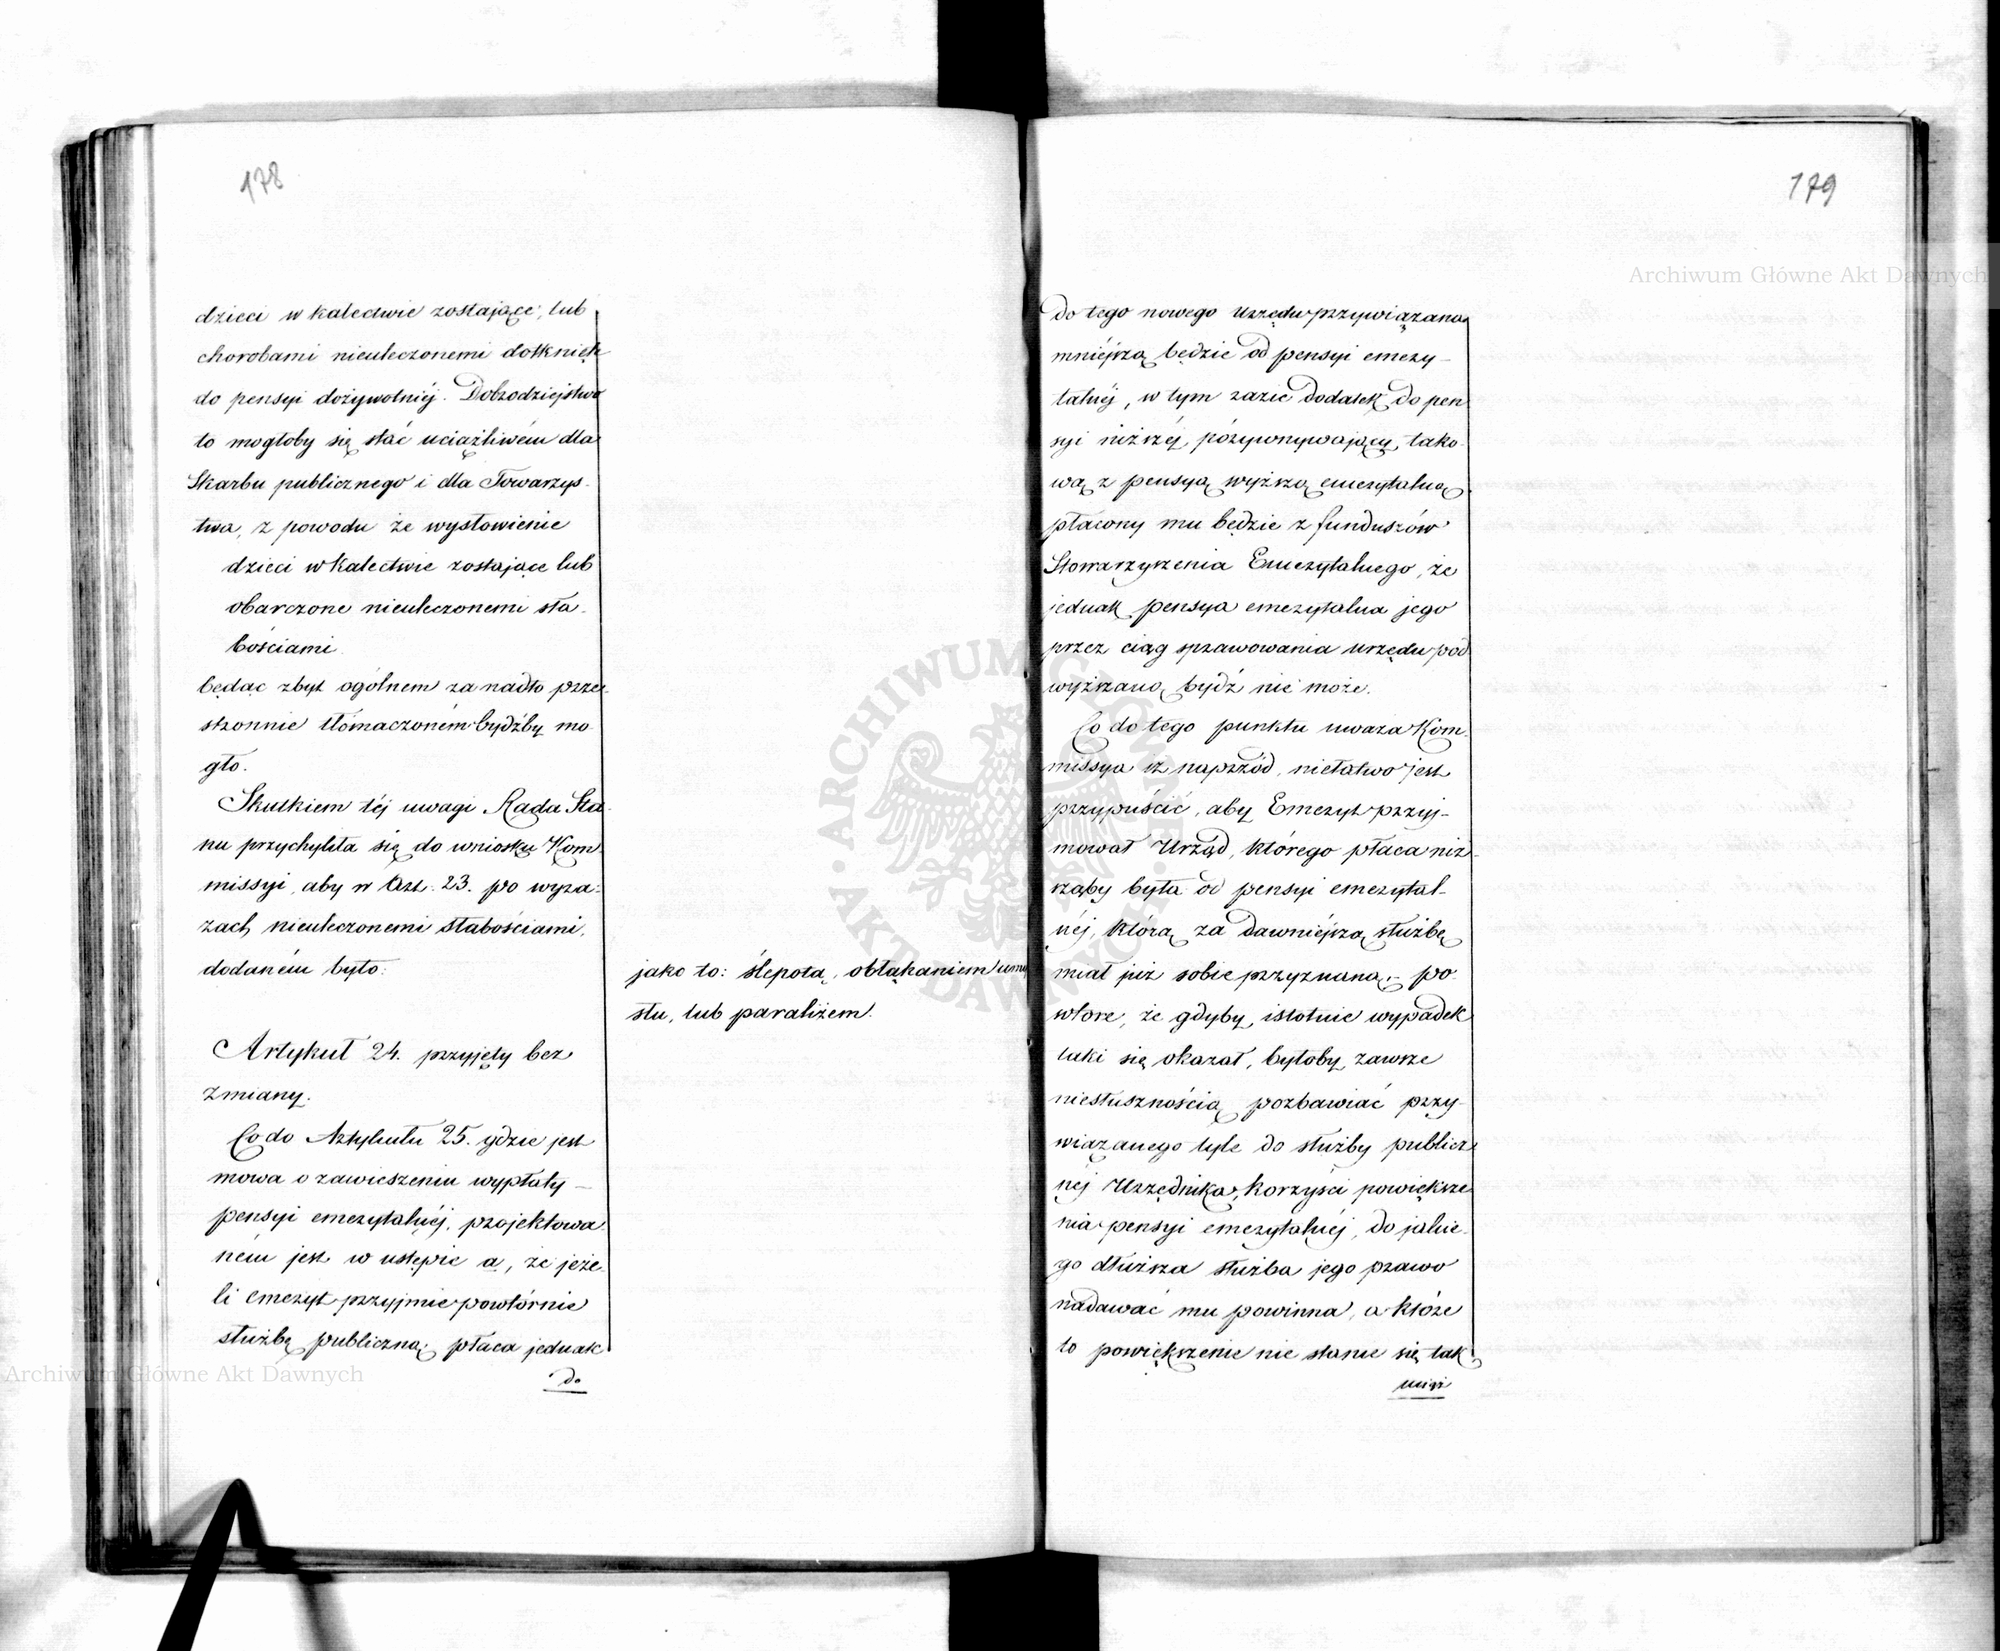 178
dzieci w kalectwie zostające, lub
chorobami nieuleczonemi dotknięte
do pensyi dożywotniéj. Dobrodziejstwo
to mogłoby się stać uciążliwém dla
Skarbu publicznego i dla Towarzys-
twa, z powodu że wysłowienie
dzieci w kalectwie zostające lub
obarczone nieuleczonemi sła-
bościami
będąc zbyt ogólnem za nadto prze-
stronnie tłómaczoném bydźby mo-
gło.
Skutkiem téj uwagi Rada Sta-
nu przychyliła się do wniosku Kom-
missyi, aby w Art. 23. po wyra-
zach nieuleczonemi słabościami,
dodaném było:
jako to: ślepotą, obłąkaniem umy
słu, lub paraliżem.
Artykuł 24. przyjęty bez
zmiany.
Co do Artykułu 25. gdzie jest
mowa o zawieszeniu wypłaty
pensyi emerytalnéj, projektowa-
ném jest w ustępie a, że jeże-
li emeryt przyjmie powtórnie
służbę publiczną, płaca jednak
do
179
do tego nowego urzędu przywiązana
mniéjszą będzie od pensyi emery-
talnéj, w tym razie dodatek do pen
syi niższéj, porównywający tako-
wą z pensyą wyższą emerytalną
płacony mu będzie z funduszów
Stowarzyszenia Emerytalnego, że
jednak pensya emerytalna jego
przez ciąg sprawowania urzędu pod
wyższaną bydź nie może.
Co do tego punktu uważa Kom-
missya iż naprzód, niełatwo jest
przypuścić, aby Emeryt przyj-
mował Urząd, którego płaca niż-
sząby była od pensyi emerytal-
néj, którą za dawniéjszą służbę
miał już sobie przyznaną; po-
wtore, że gdyby istotnie wypadek
taki się okazał, byłoby zawsze
niesłusznością pozbawiać przy-
wiązanego tyle do służby publicz
néj Urzędnika, korzyści powiększe
nia pensyi emerytalnéj, do jakie-
go dłuższa służba jego prawo
nadawać mu powinna, a które
to powiększenie nie stanie się tak
Archiwum Główne Akt Dawnych
Archiwum Główne Akt Dawnych
ARCHIWUM GŁÓWNE AKT DAWNYCH